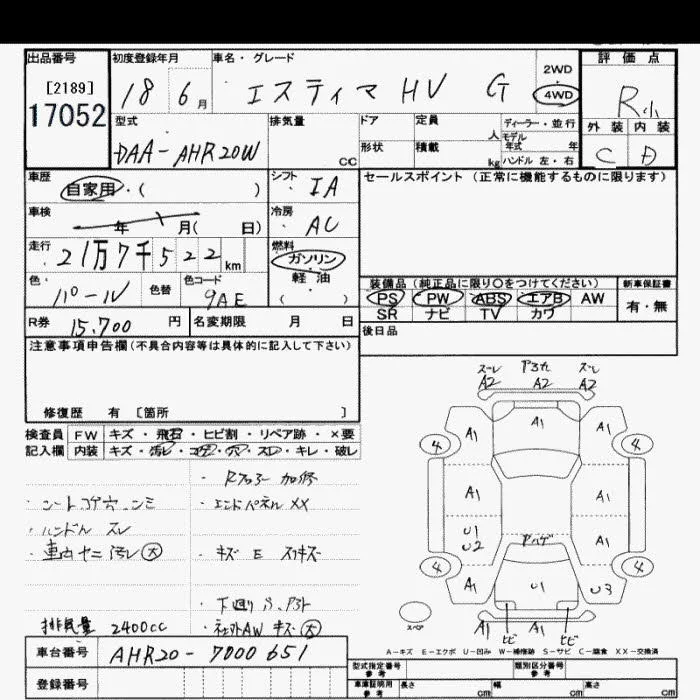 出品番号
[2189]
17052
初度登録年月
18 6月
車名・グレード
エスティマ HV G
2WD
4WD
評価点
R小
外装 内装
C D
型式
DAA-AHR20W
排気量
cc
ドア
定員
人
形状
積載
kg
ディーラー・並行
モデル
年式 年
ハンドル 左・右
車歴
自家用・( )
シフト
IA
セールスポイント (正常に機能するものに限ります)
車検
年 月( 日)
冷房
AC
走行
21万7千522km
燃料
ガソリン
軽油
( )
色・
パール
色替
色コード
9AE
装備品(純正品に限り〇をつけてください)
PS PW ABS エアB AW
SR ナビ TV カワ
新車保証書
有・無
R券
15,700円
名変期限 月 日
後日品
注意事項申告欄(不具合内容等は具体的に記入して下さい)
修復歴 有 [箇所 ]
検査員
記入欄
FW キズ・飛石・ヒビ割・リペア跡・×要
内装 キズ・汚レ・コゲ・穴・スレ・キレ・破レ
・シートコゲ穴
・ハンドル スレ
・エンドパネル XX
・キズ E スリキズ
排気量 2400cc
車台番号
AHR20-7000651
登録番号
A2 A2 A2
A1 A1 A1
4 4
A1 A1
U1
U2
A1
4 4
A1 U1 U3
A1 A1
ヒビ ヒビ
スペア
A-キズ E-エクボ U-凹み W-補修跡 S-サビ C-腐食 XX-交換済
型式指定番号
参考
類別区分番号
参考
車庫証明用
参考
長さ cm
幅 cm
高さ cm